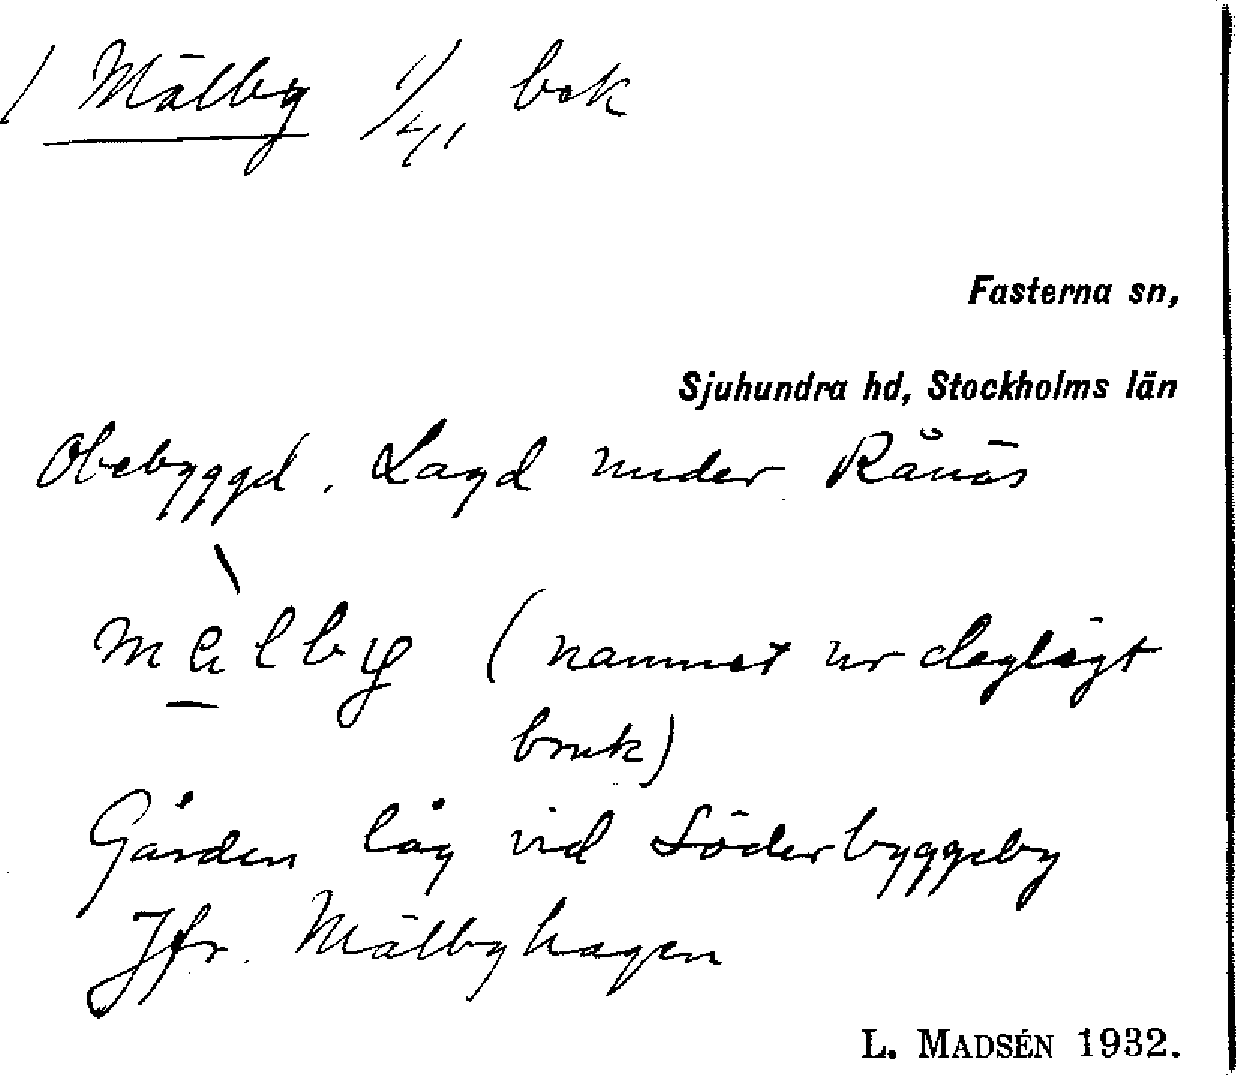 / Mälby 1/4,, bek
Fasterna sn,
Sjuhundra hd, Stockholms län
Obebyggd. Lagd under Rånäs
mälby (namnet ur dagligt
bruk)
Gården låg vid Söderbyggeby
Jfr. Mälbyhagen
L. MADSÉN 1932.